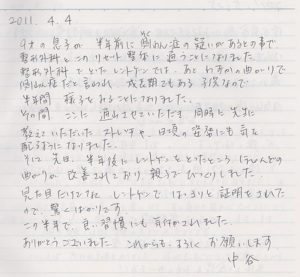 2011.4.4
9才の息子が半年前に側わん症の疑いがあるとの事で、
整形外科とこのリセット整体に通うことになりました。
整形外科でとったレントゲンでは、あとわずかの曲がりで
側わん症だと言われ、成長期でもある子供なので
半年間様子をみることになりました。
その間ここに通わせていただき、同時に先生に
教えていただいたストレッチや、日頃の姿勢にも気を
配るようになりました。
そして先日、半年後にレントゲンをとったところ、ほとんどの
曲がりが改善されており、親子でびっくりしました。
見た目だけでなく、レントゲンではっきりと証明をされた
ので、驚くばかりです。
この半年で、良い習慣にも気付かされました。
ありがとうございました。これからもよろしくお願いします。
中谷